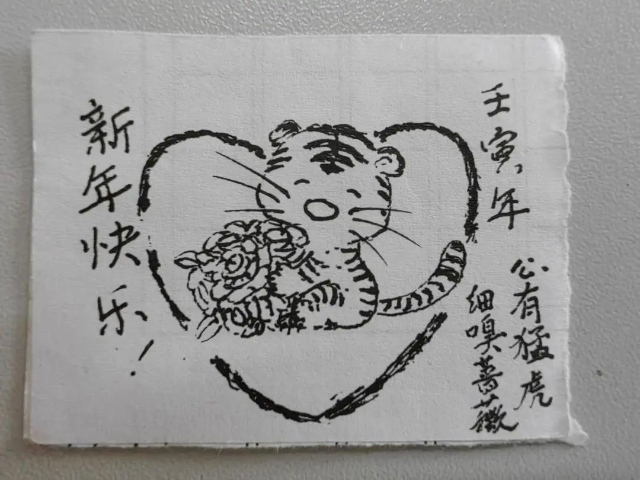 新年快乐！
壬寅年
公有猛虎
细嗅蔷薇